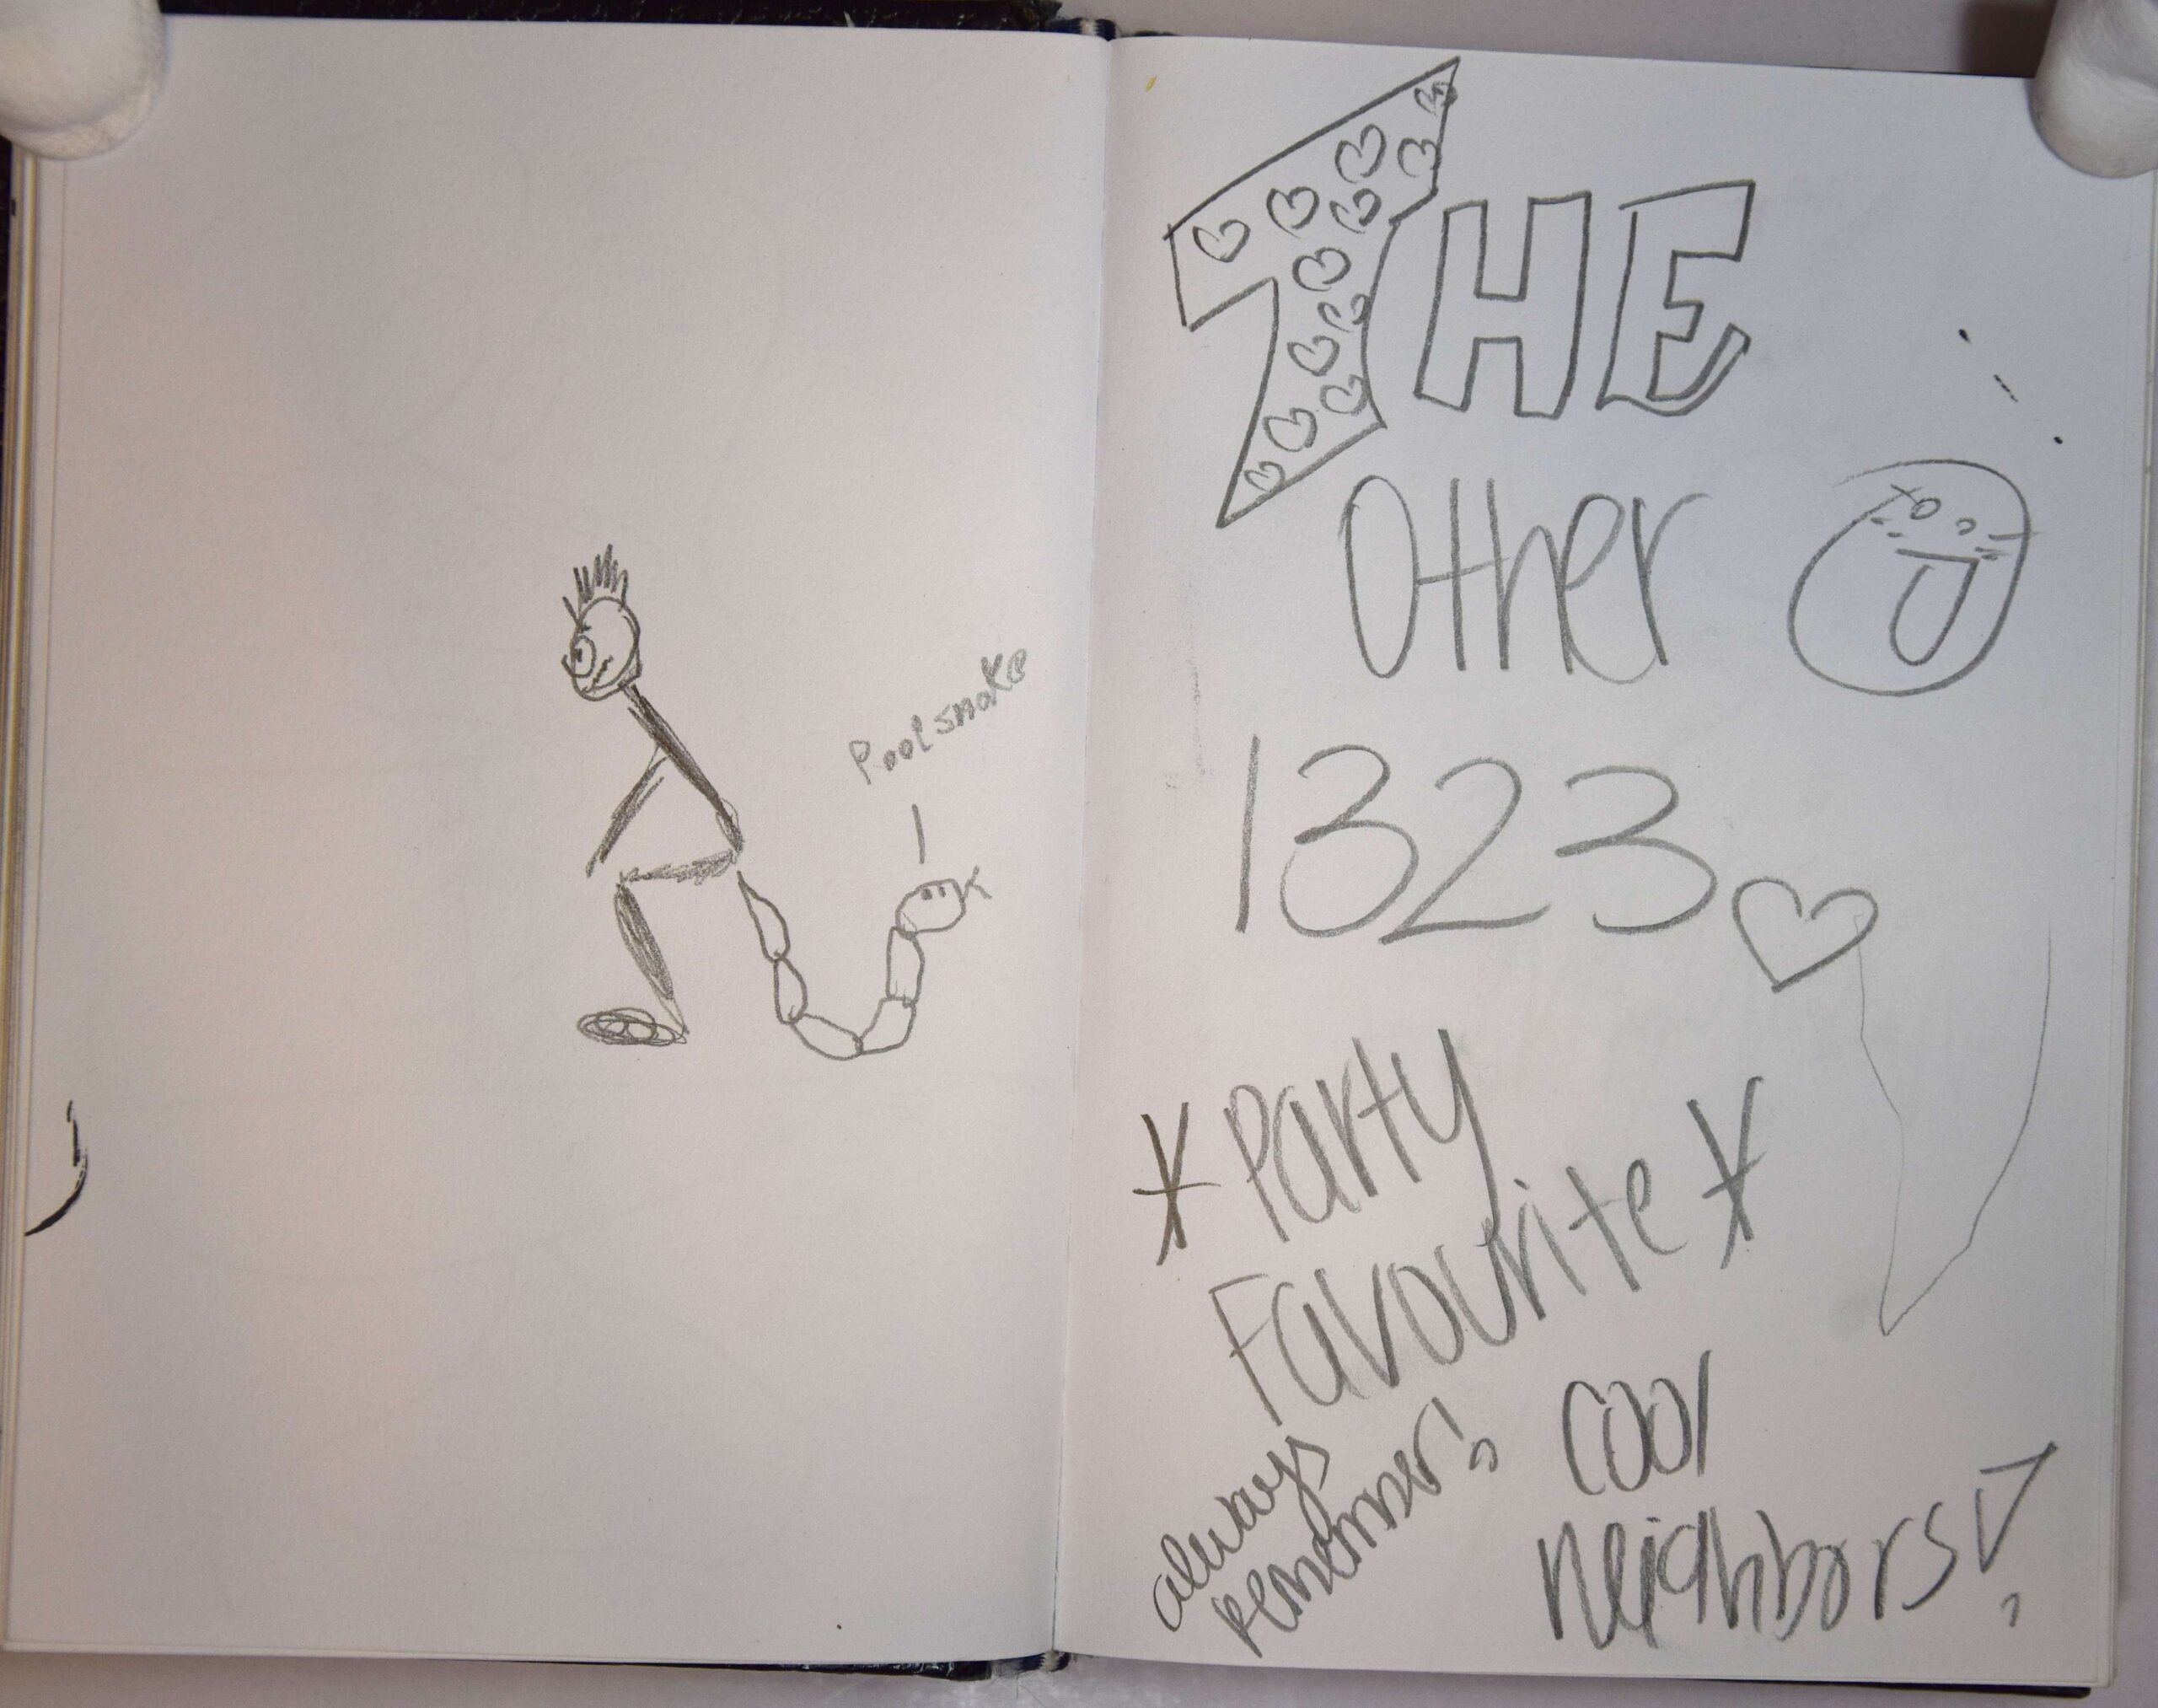 Poolsnake
THE
Other
1323
* Party
Favourite *
always
remember!
cool
neighbors!